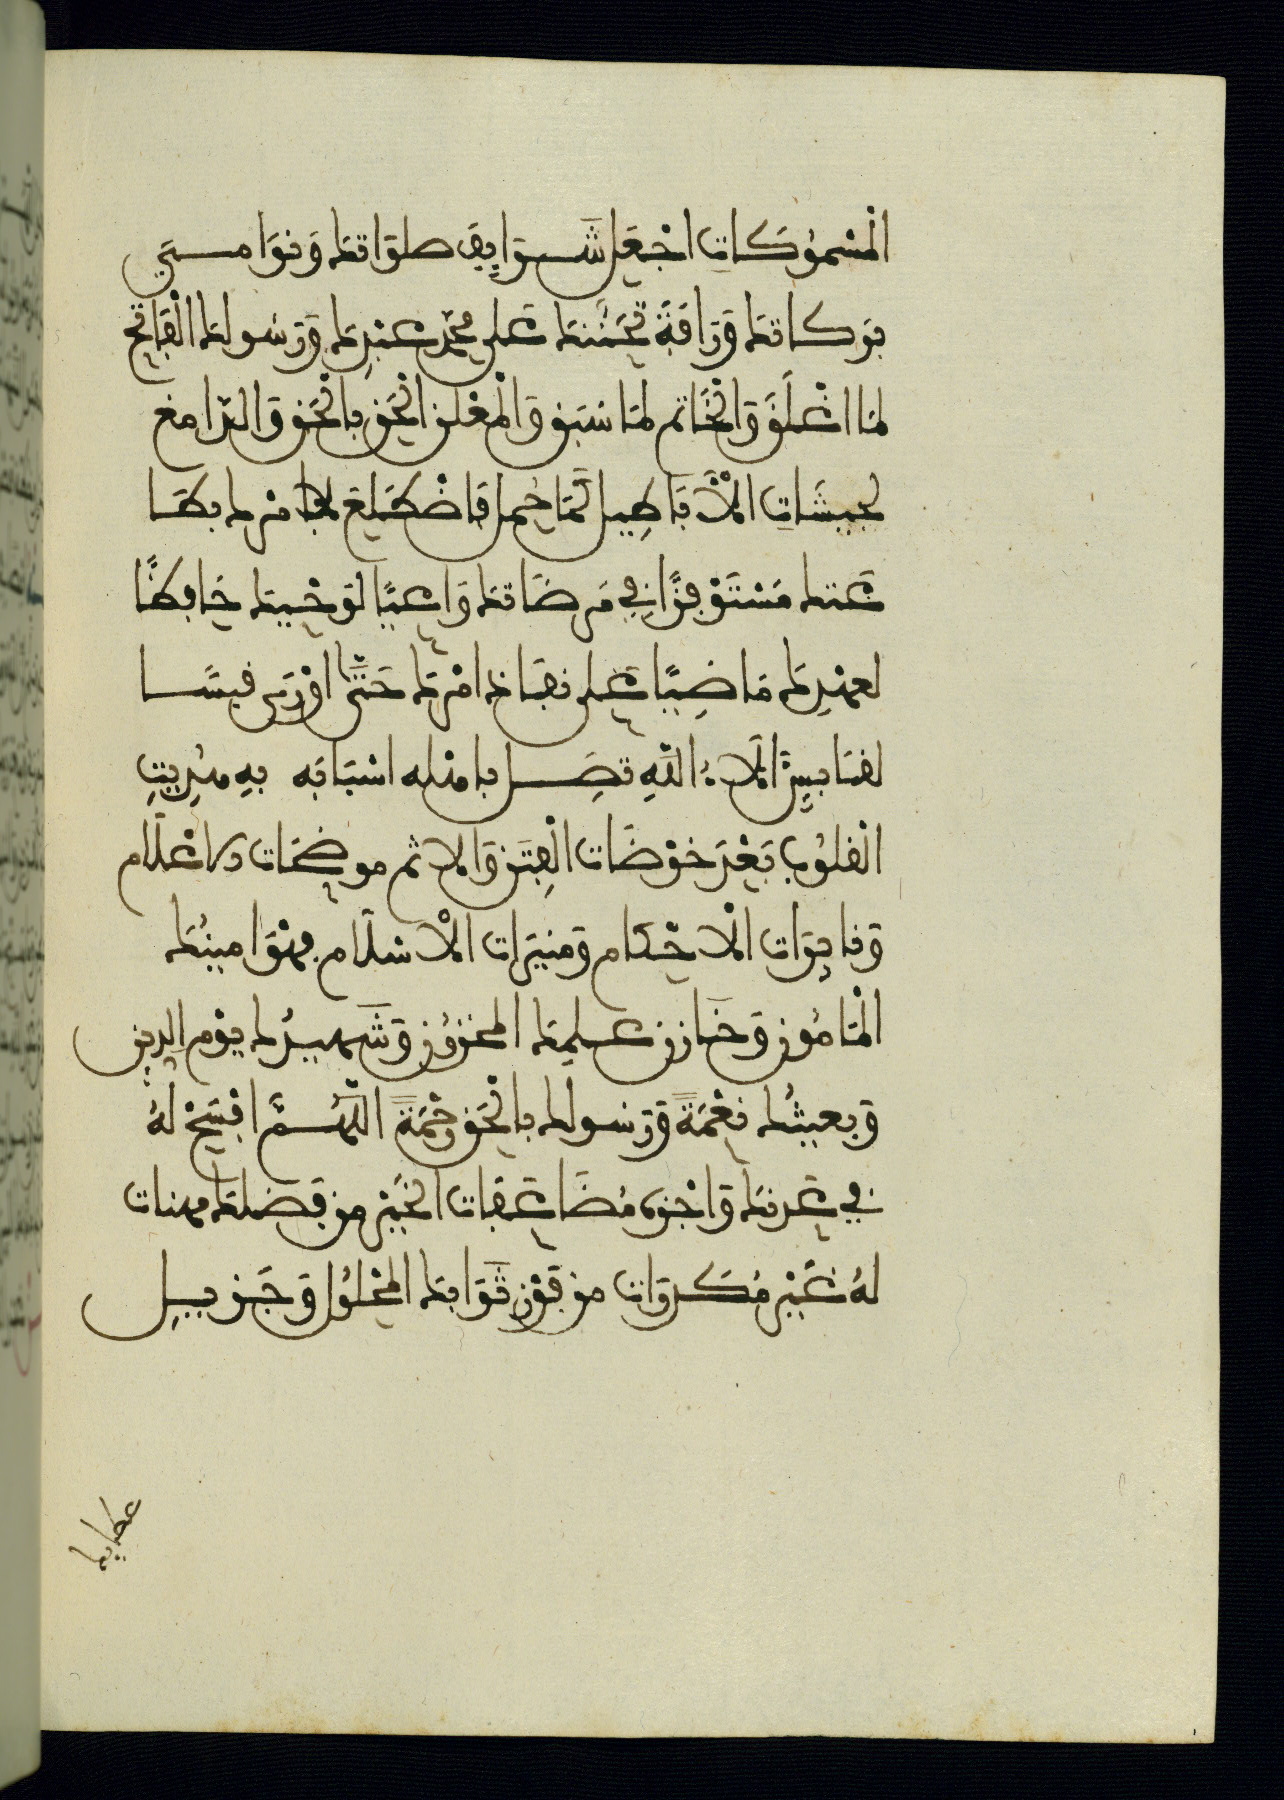 الْمَسْمُوكَاتِ اجْعَل شَرَايِفَ صلوَاتكَ وَنوَامِيَ
بَرَكَاتكَ وَرَافَةَ تَحَنُّنكَ عَلى مُحَمَّدٍ عَبْدِكَ وَرَسُولكَ الْفَاتح
لمَا اغْلقَ وَالْخَاتم لمَا سَبَق وَالْمُعْلن الْحَق بِالْحَق وَالدَّامغ
لجَيْشَاتِ الْأَبَاطِيل كَمَا حُمل فَاضْطَلعَ بِأَمْرِكَ بِطَا
عَتكَ مُسْتَوْفِزًا فِي مَرْضَاتكَ وَاعِيًا لوَحْيكَ حَافِظًا
لعَهْدِكَ مَاضِيًا عَلى نفَاذ امْرِكَ حَتَّى اوْرَى قبَسًا
لقَابِسٍ الَاءُ اللَّهِ تصِل بِاهْله اسْبَابَه بِهِ هُدِيَتِ
الْقلُوبُ بَعْدَ خَوْضَات الْفِتَن وَالاثم موضحَات الاعْلَام
وَنايِرَات الْاحْكَام وَمنيرَات الْاسْلَام فهْوَ امينُكَ
الْمَامُون وَخَازن علمِكَ المَخْزُون وَشَهِيدُكَ يوْم الدِّين
وَبعيثُكَ نعْمَةً وَرَسولك بِالْحَق رَحْمَةً اللَّهُمَّ افْسَحْ لهُ
فِي عَدْنكَ وَاجْزِه مُضَاعَفَات الخَيْر من فَضْلكَ مهنات
لهُ غَيْر مُكَدرَات من فَوْز ثَوَابكَ المَحْلُول وَجَزِيل
عطايك